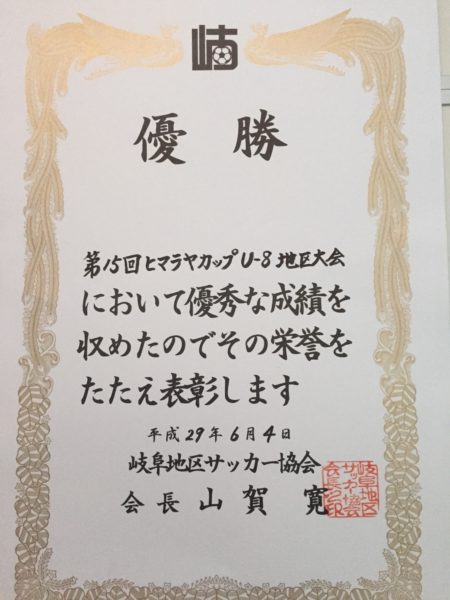 岐
優勝
第15回ヒマラヤカップU-8地区大会
において優秀な成績を
収めたのでその栄誉を
たたえ表彰します
平成29年6月4日
岐阜地区サッカー協会
会長 山賀 寛
岐阜地区
サッカー協会
会長之印